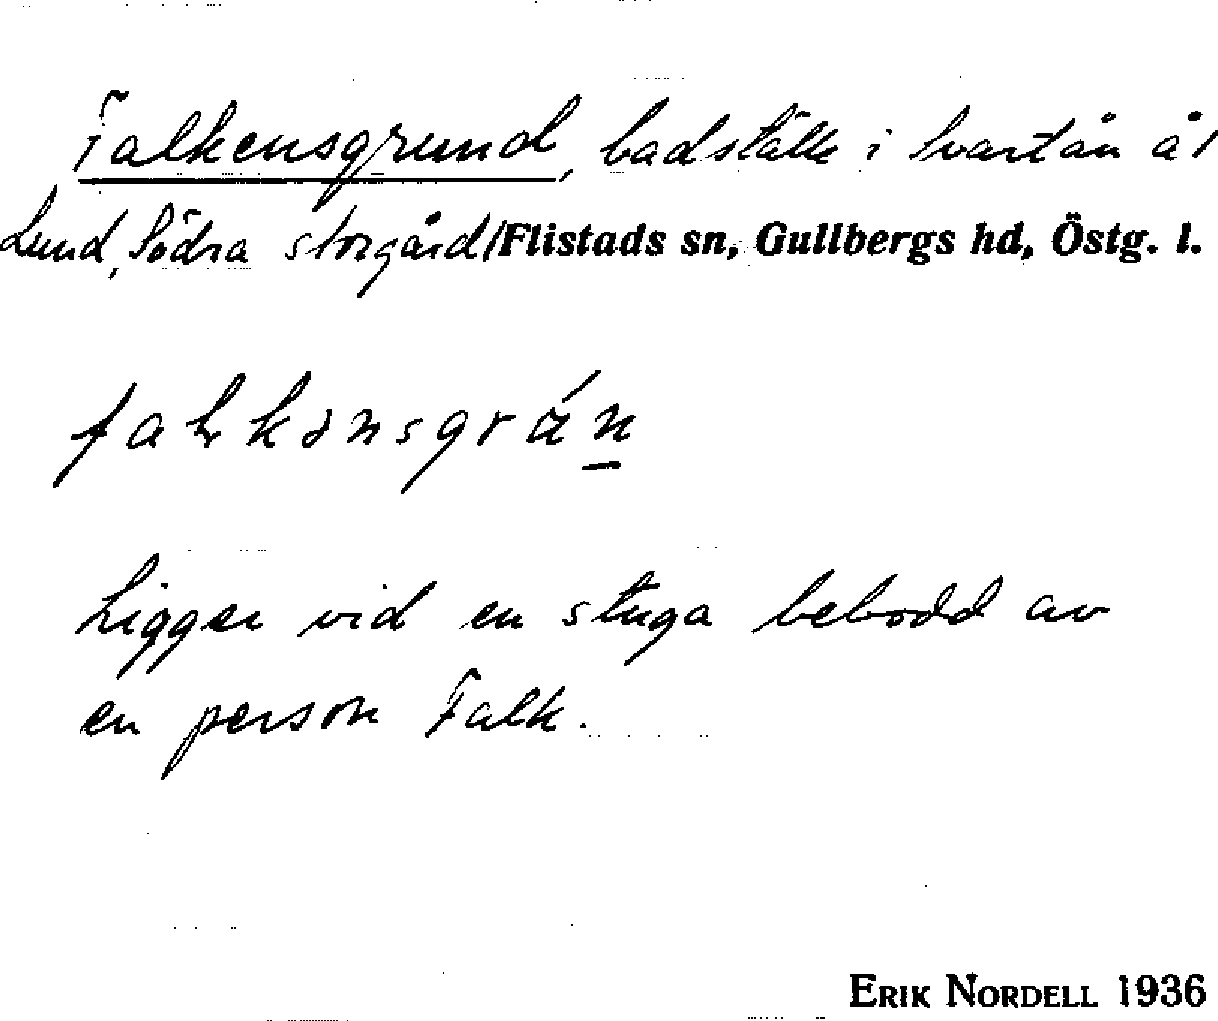 Falkensgrund, badställe i Svartån å/
Lund, Södra storgård/Flistads sn, Gullbergs hd, Östg. l.
Ligger vid en stuga bebodd av
en person Falk.
ERIK NORDELL 1936